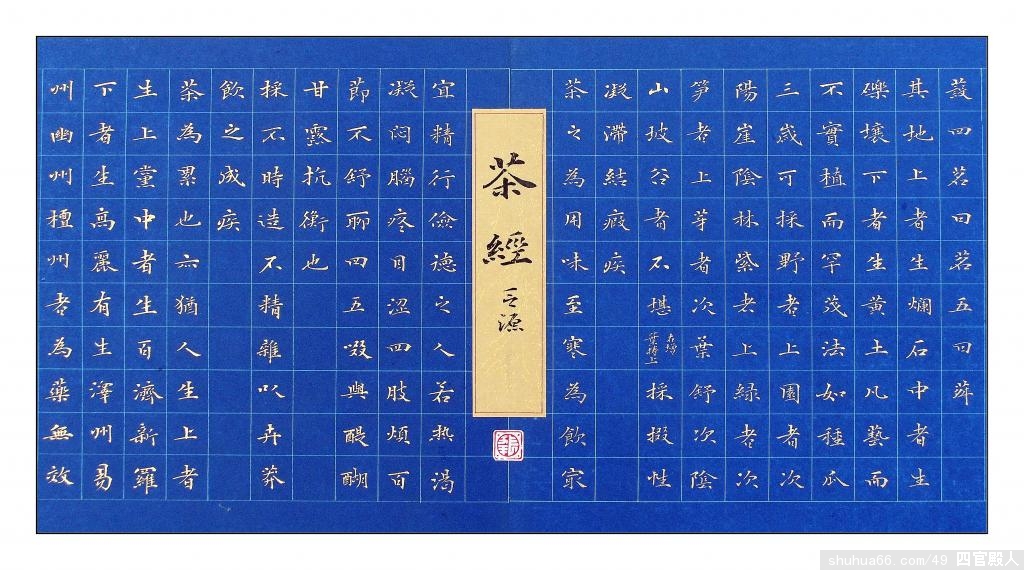 蔎四茗曰茗五曰荈
其地上者生爛石中者生
礫壤下者生黃土凡藝而
不實植而罕茂法如種瓜
三歲可採野者上園者次
陽崖陰林紫者上綠者次
笋者上芽者次葉舒次陰
山坡谷者不堪採掇性
凝滯結瘕疾
茶之為用味至寒為飲冣
茶經 之源
宜精行儉德之人若热渴
凝闷腦疼目澀四肢煩百
節不舒聊四五啜與醍醐
甘露抗衡也
採不時造不精雜以卉莽
飲之成疾
茶為累也亦猶人生上者
生上黨中者生百濟新羅
下者生高麗有生澤州易
州幽州檀州者為藥無效
shuhua66.com/49 四官殿人